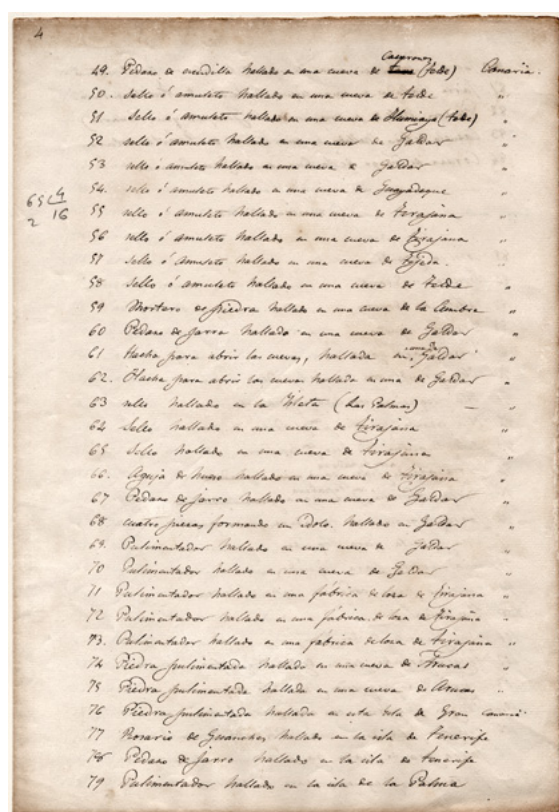 4
49. Pedazo de escudilla hallado en una cueva de Casprowz (Telde) Canaria.
50. Sello ó amuleto hallado en una cueva de Telde "
51 Sello ó amuleto hallado en una cueva de (Telde) "
52 sello ó amuleto hallado en una cueva de Galdar "
53 sello ó amuleto hallado en una cueva de Galdar "
54. sello ó amuleto hallado en una cueva de Guayadeque "
65 4
2 16
55 sello ó amuleto hallado en una cueva de Tirajana "
56 sello ó amuleto hallado en una cueva de Tirajana "
57 Sello ó amuleto hallado en una cueva de Tejeda. "
58 Sello ó amuleto hallado en una cueva de Telde "
59 Mortero de piedra hallado en una cueva de la Cumbre "
60 Pedazo de jarro hallado en una cueva de Galdar "
61 Hacha para abrir las cuevas, hallada en una de Galdar "
62. Hacha para abrir las cuevas hallada en una de Galdar "
63 sello hallado en la Isleta (Las Palmas) — "
64 Sello hallado en una cueva de Tirajana "
65 Sello hallado en una cueva de Tirajana "
66. Aguja de hueso hallado en una cueva de Tirajana "
67 Pedazo de jarro hallado en una cueva de Galdar "
68 cuatro piezas formando un Idolo. hallado en Galdar "
69. Pulimentador hallado en una cueva de Galdar "
70 Pulimentador hallado en una cueva de Galdar "
71 Pulimentador hallado en una fábrica de loza de Tirajana "
72 Pulimentador hallado en una fábrica de loza de Tirajana "
73. Pulimentador hallado en una fabrica de loza de Tirajana "
74 Piedra pulimentada hallado en una cueva de Arucas "
75 Piedra pulimentada hallada en una cueva de Arucas "
76 Piedra pulimentada hallada en esta isla de Gran Canaria
77 Rosario de Guanches hallado en la isla de Tenerife
78 Pedazo de jarro hallado en la isla de Tenerife
79 Pulimentador hallado en la isla de la Palma